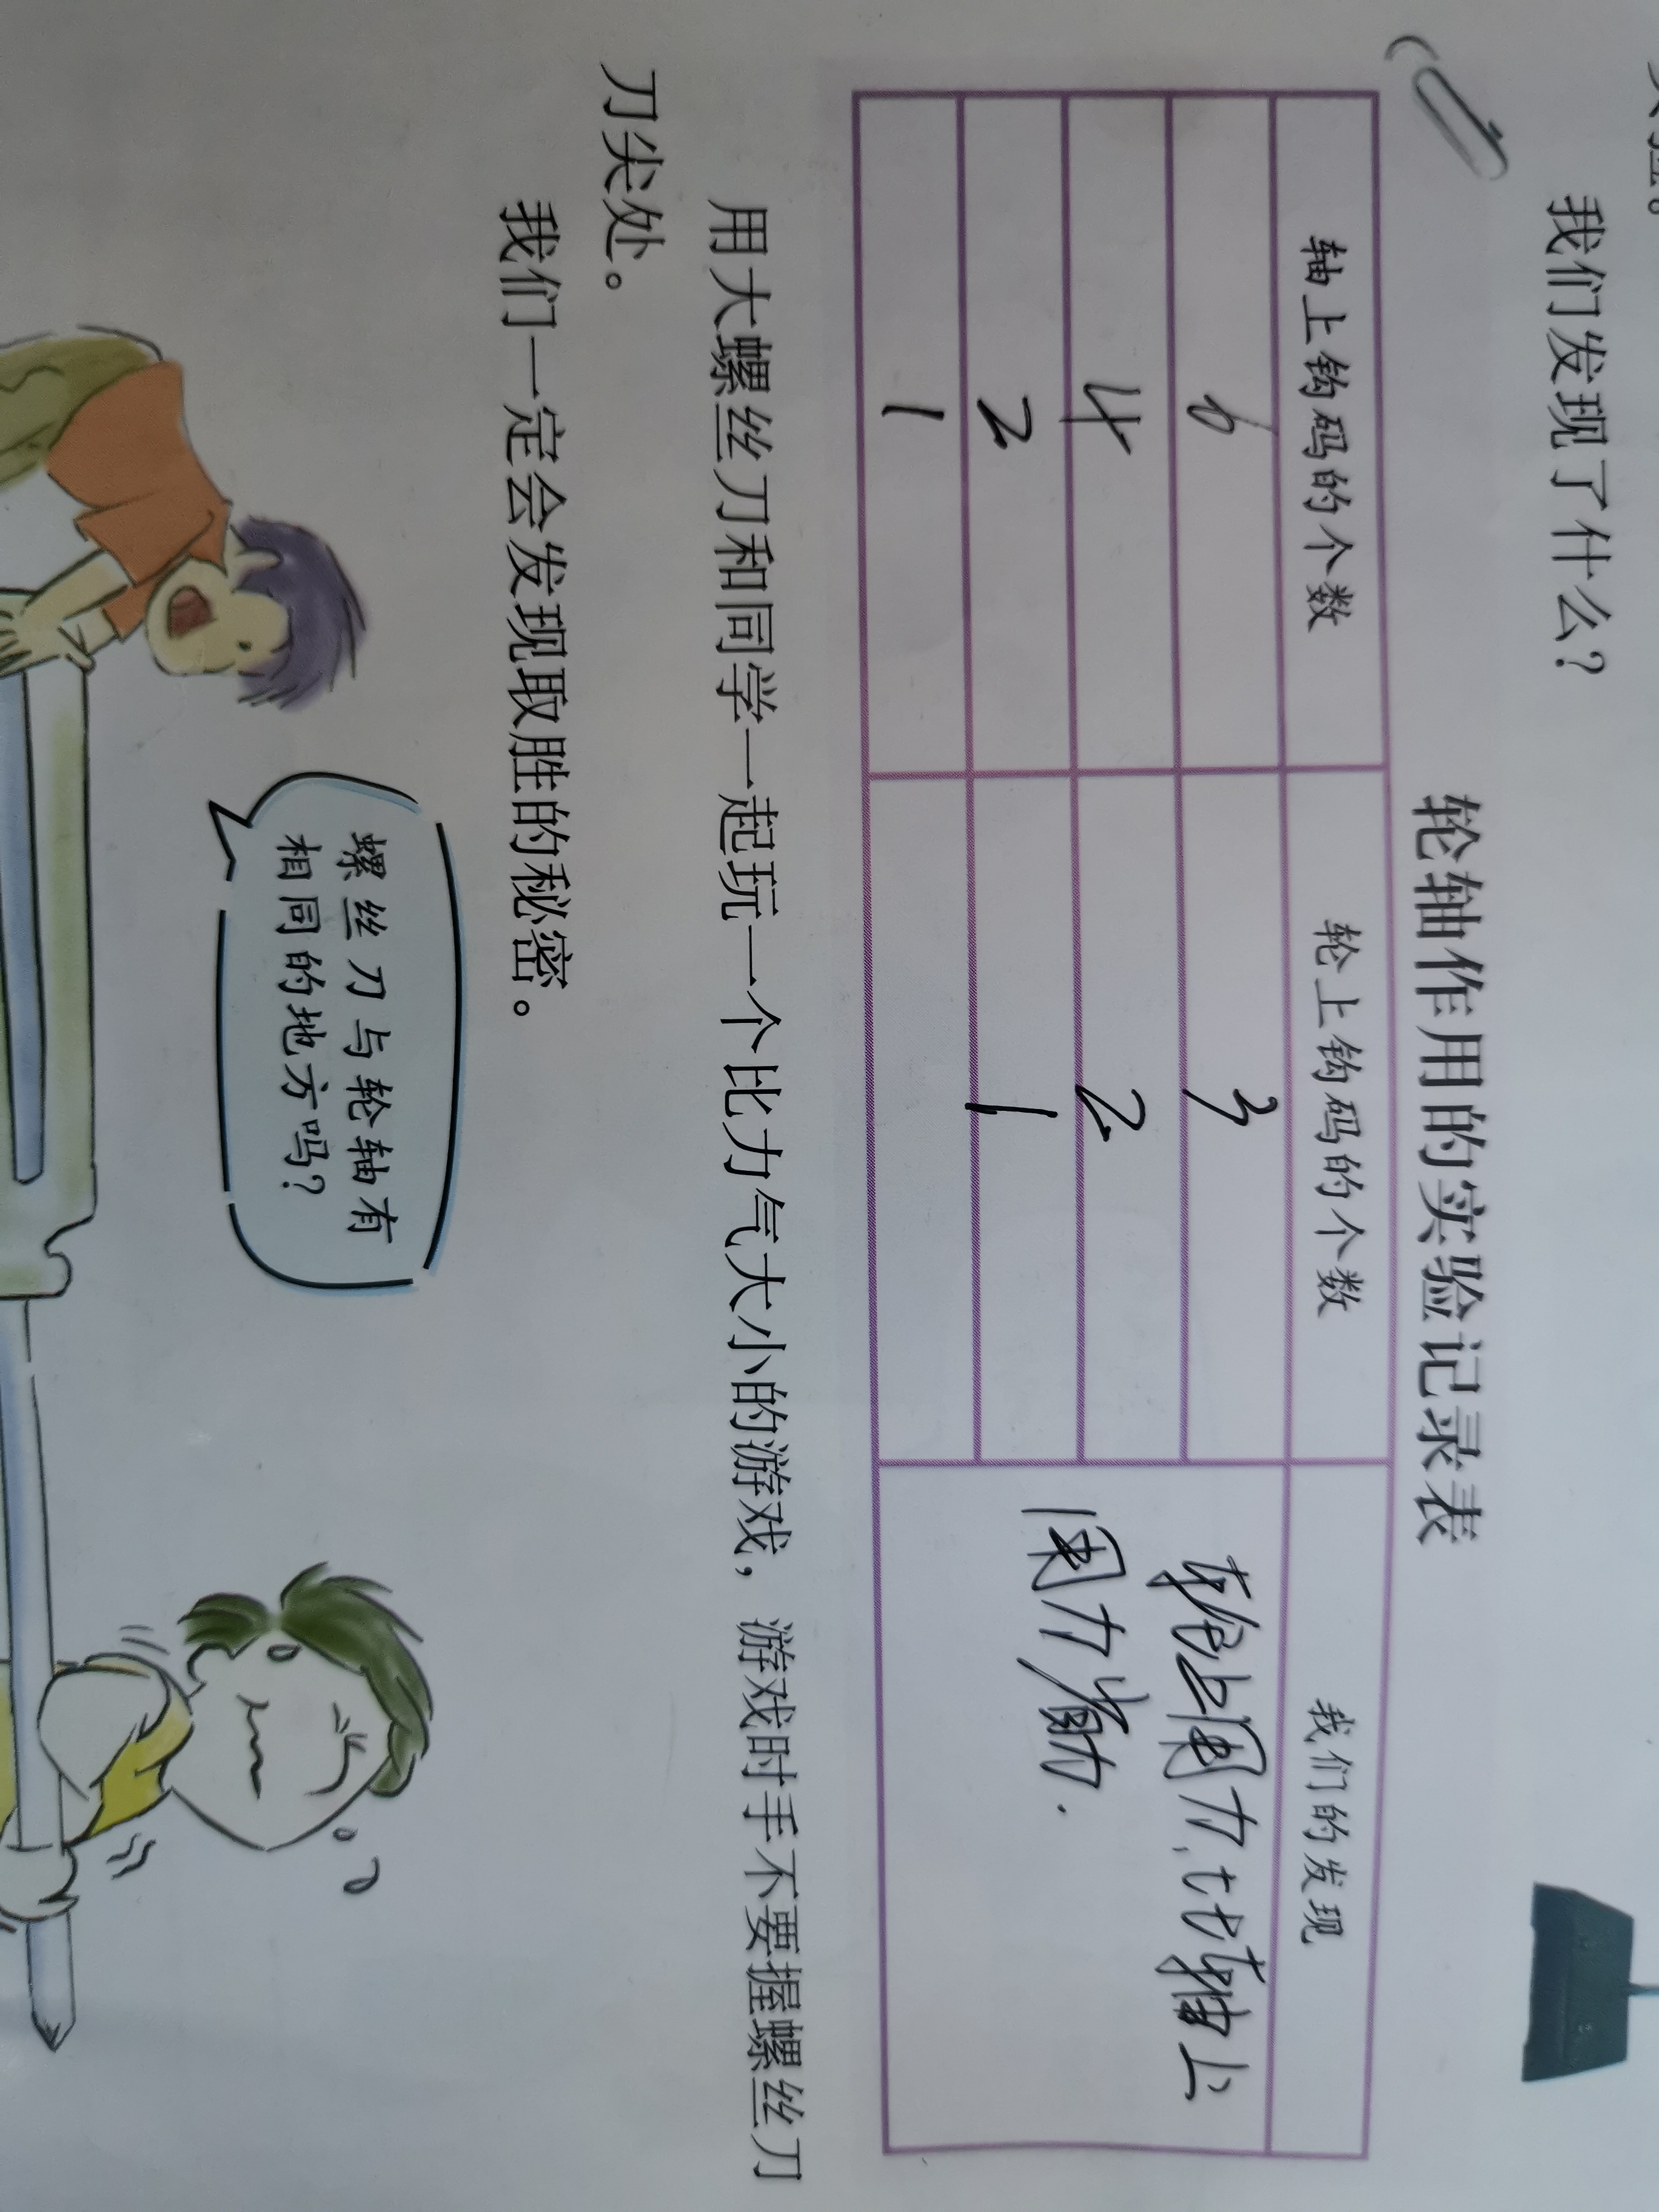 我们发现了什么？
轮轴作用的实验记录表
轴上钩码的个数 轮上钩码的个数 我们的发现
6 3
4 2
2 1
1
轮上用力,比轴上
用力省力.
用大螺丝刀和同学一起玩一个比力气大小的游戏，游戏时手不要握螺丝刀
刀尖处。
我们一定会发现取胜的秘密。
螺丝刀与轮轴有
相同的地方吗？